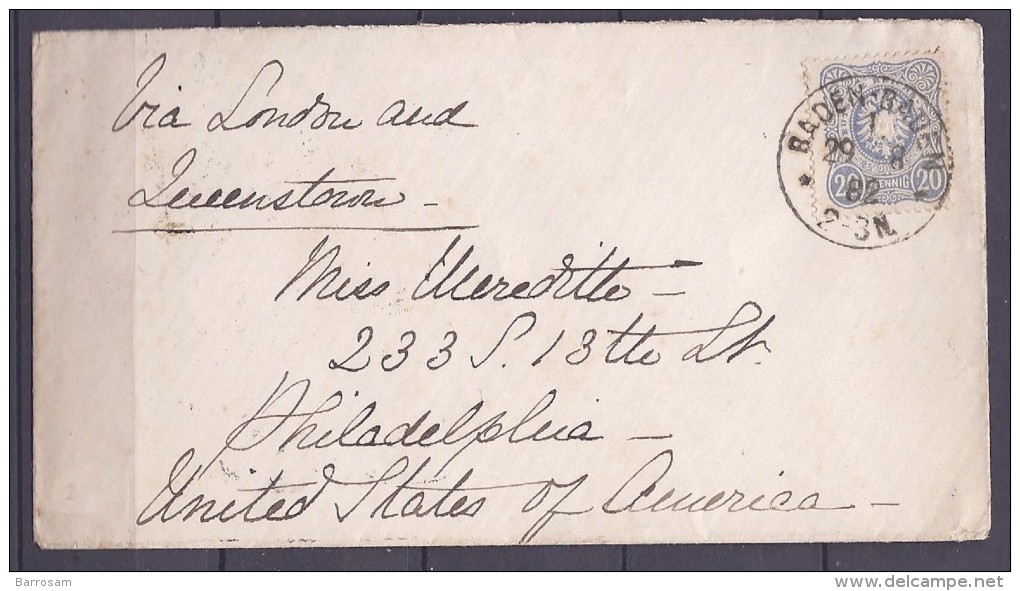 Via London and
Queenstown -
Miss Meredith -
233 S. 13th St.
Philadelphia -
United States of America -
BADEN-BADEN
1
29 8
82
2-3N.
*
20 PFENNIG 20
Barrosam
www.delcampe.net